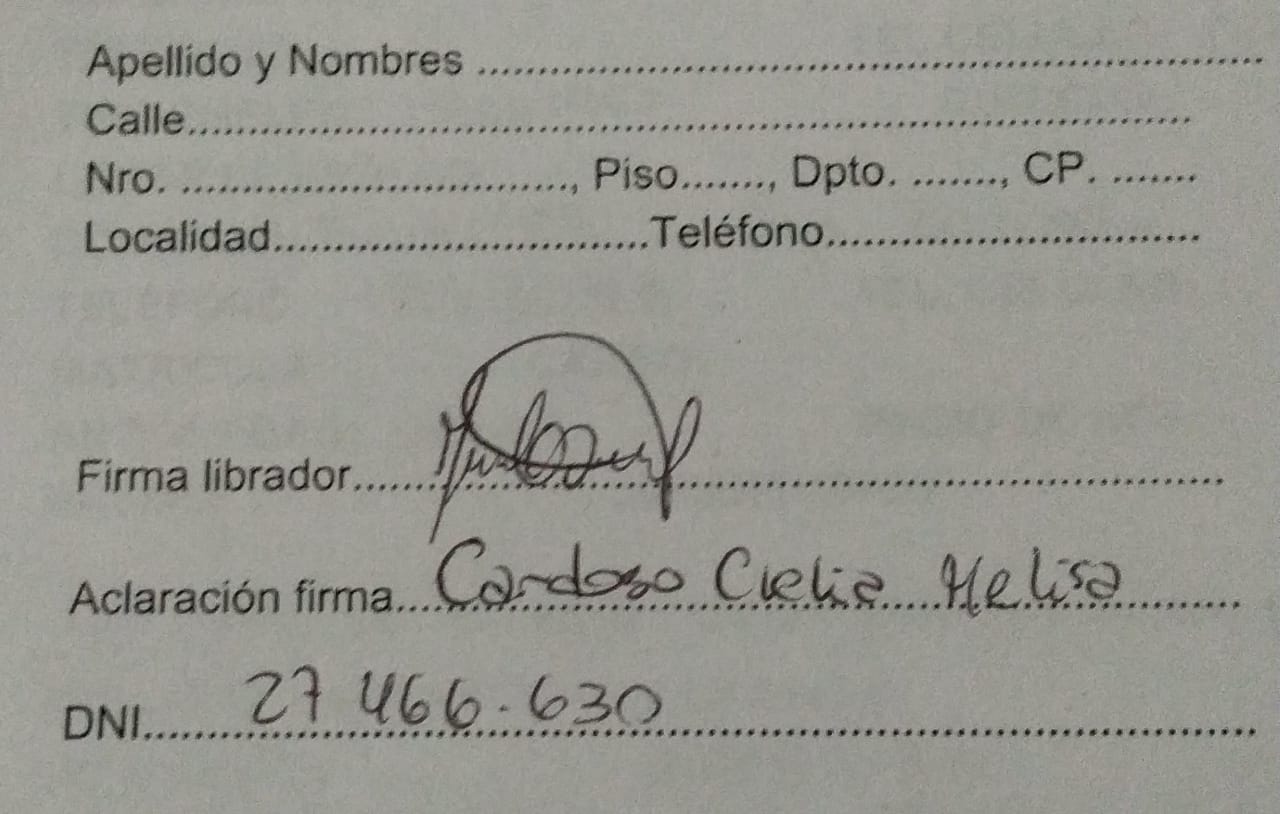 Apellido y Nombres ................................................................
Calle................................................................................
Nro. ................................, Piso......., Dpto. ......., CP. .......
Localidad...............................Teléfono...............................
Firma librador................................................................
Aclaración firma....Cardoso Clelia Melisa..........
DNI......27 466.630................................................